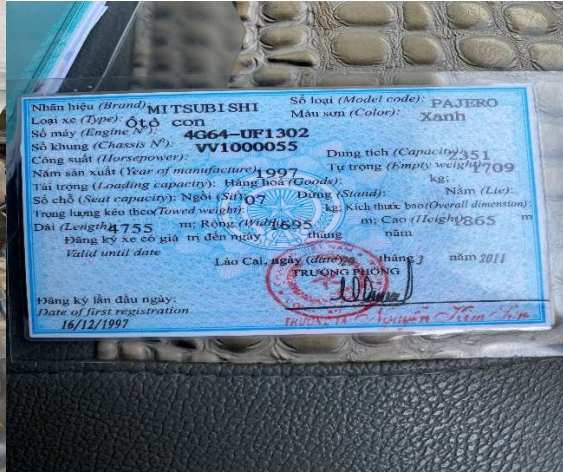 Nhãn hiệu (Brand) MITSUBISHI Số loại (Model code): PAJERO
Loại xe (Type): Ôtô con Màu sơn (Color): Xanh
Số máy (Engine Nº): 4G64-UF1302
Số khung (Chassis Nº): VV1000055
Công suất (Horsepower): Dung tích (Capacity) 2351
Năm sản xuất (Year of manufacture) 1997 Tự trọng (Empty weight) 1709
Tải trọng (Loading capacity): Hàng hoá (Goods): kg;
Số chỗ (Seat capacity): Ngồi (Sit) 07 Đứng (Stand): Nằm (Lie):
Trọng lượng kéo theo (Towed weight) kg; Kích thước bao (Overall dimension):
Dài (Length) 4755 m; Rộng (Width) 1695 m; Cao (Height) 1865 m
Đăng ký xe có giá trị đến ngày tháng năm
Valid until date
Lào Cai, ngày (date) tháng 3 năm 2011
TRƯỞNG PHÒNG
Đăng ký lần đầu ngày:
Date of first registration
16/12/1997
Nguyễn Kim